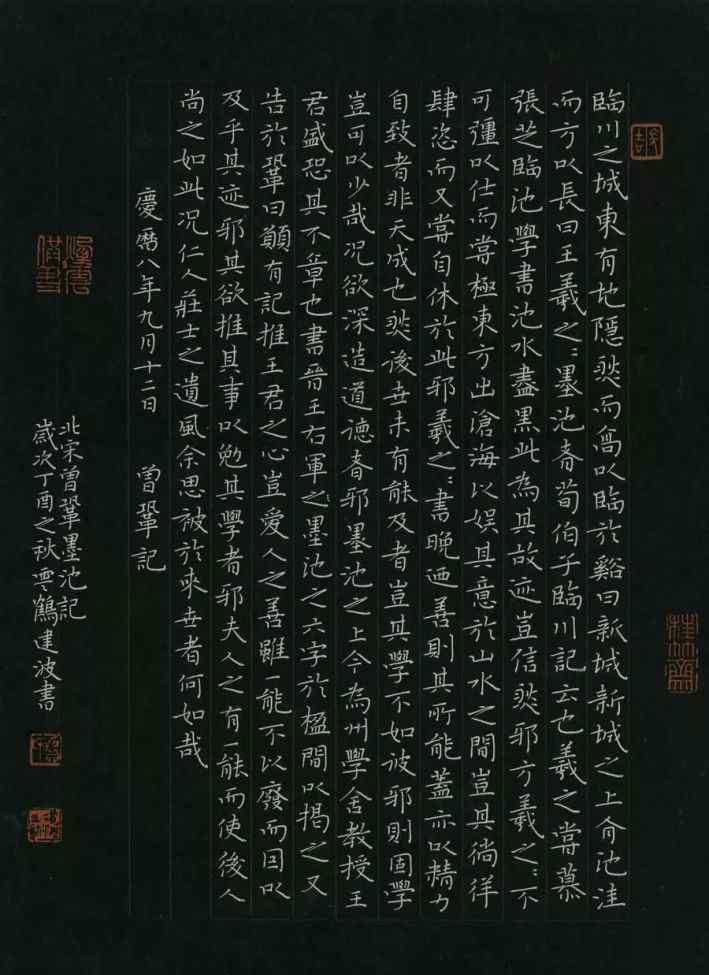 臨川之城東有地隱然而高以臨於谿曰新城新城之上有池洼
而方以長曰王羲之:墨池者荀伯子臨川記云也羲之嘗慕
張芝臨池學書池水盡黑此為其故迹豈信然邪方羲之:不
可彊以仕而嘗極東方出滄海以娛其意於山水之間豈其徜徉
肆恣而又嘗自休於此邪羲之:書晚迺善則其所能蓋亦以精力
自致者非天成也然後世未有能及者豈其學不如彼邪則固學
豈可以少哉況欲深造道德者邪墨池之上今為州學舍教授王
君盛恐其不章也書晉王右軍之墨池之六字於楹間以揭之又
告於鞏曰願有記推王君之心豈愛人之善雖一能不以廢而因以
及乎其迹邪其欲推其事以勉其學者邪夫人之有一能而使後人
尚之如此況仁人莊士之遺風余思被於來世者何如哉
慶曆八年九月十二日 曾鞏記
北宋曾鞏墨池記
歲次丁酉之秋雲鶴建波書